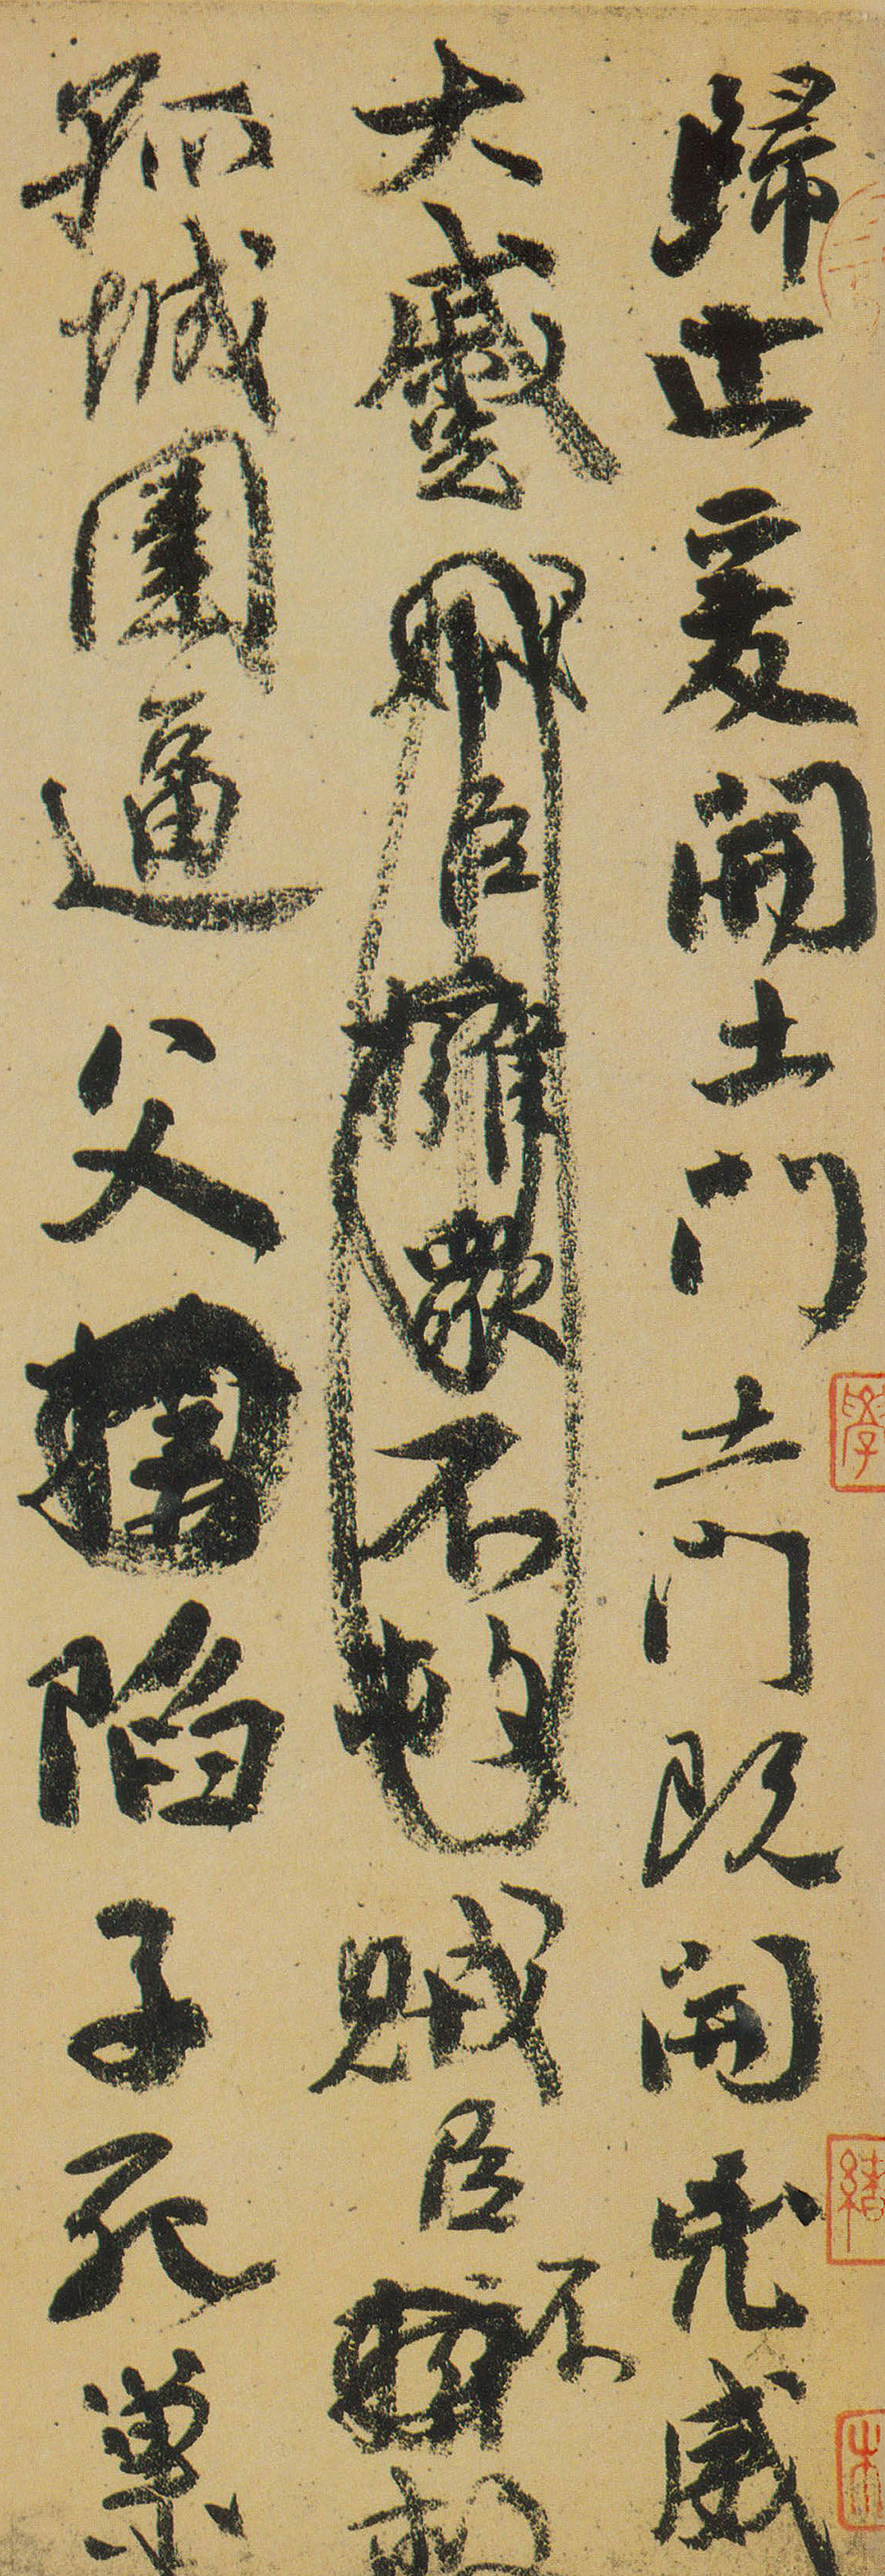 歸止爰開土門土門既開凶威
大蹙賊臣擁衆不救賊臣不救
孤城圍逼父陷子死巢